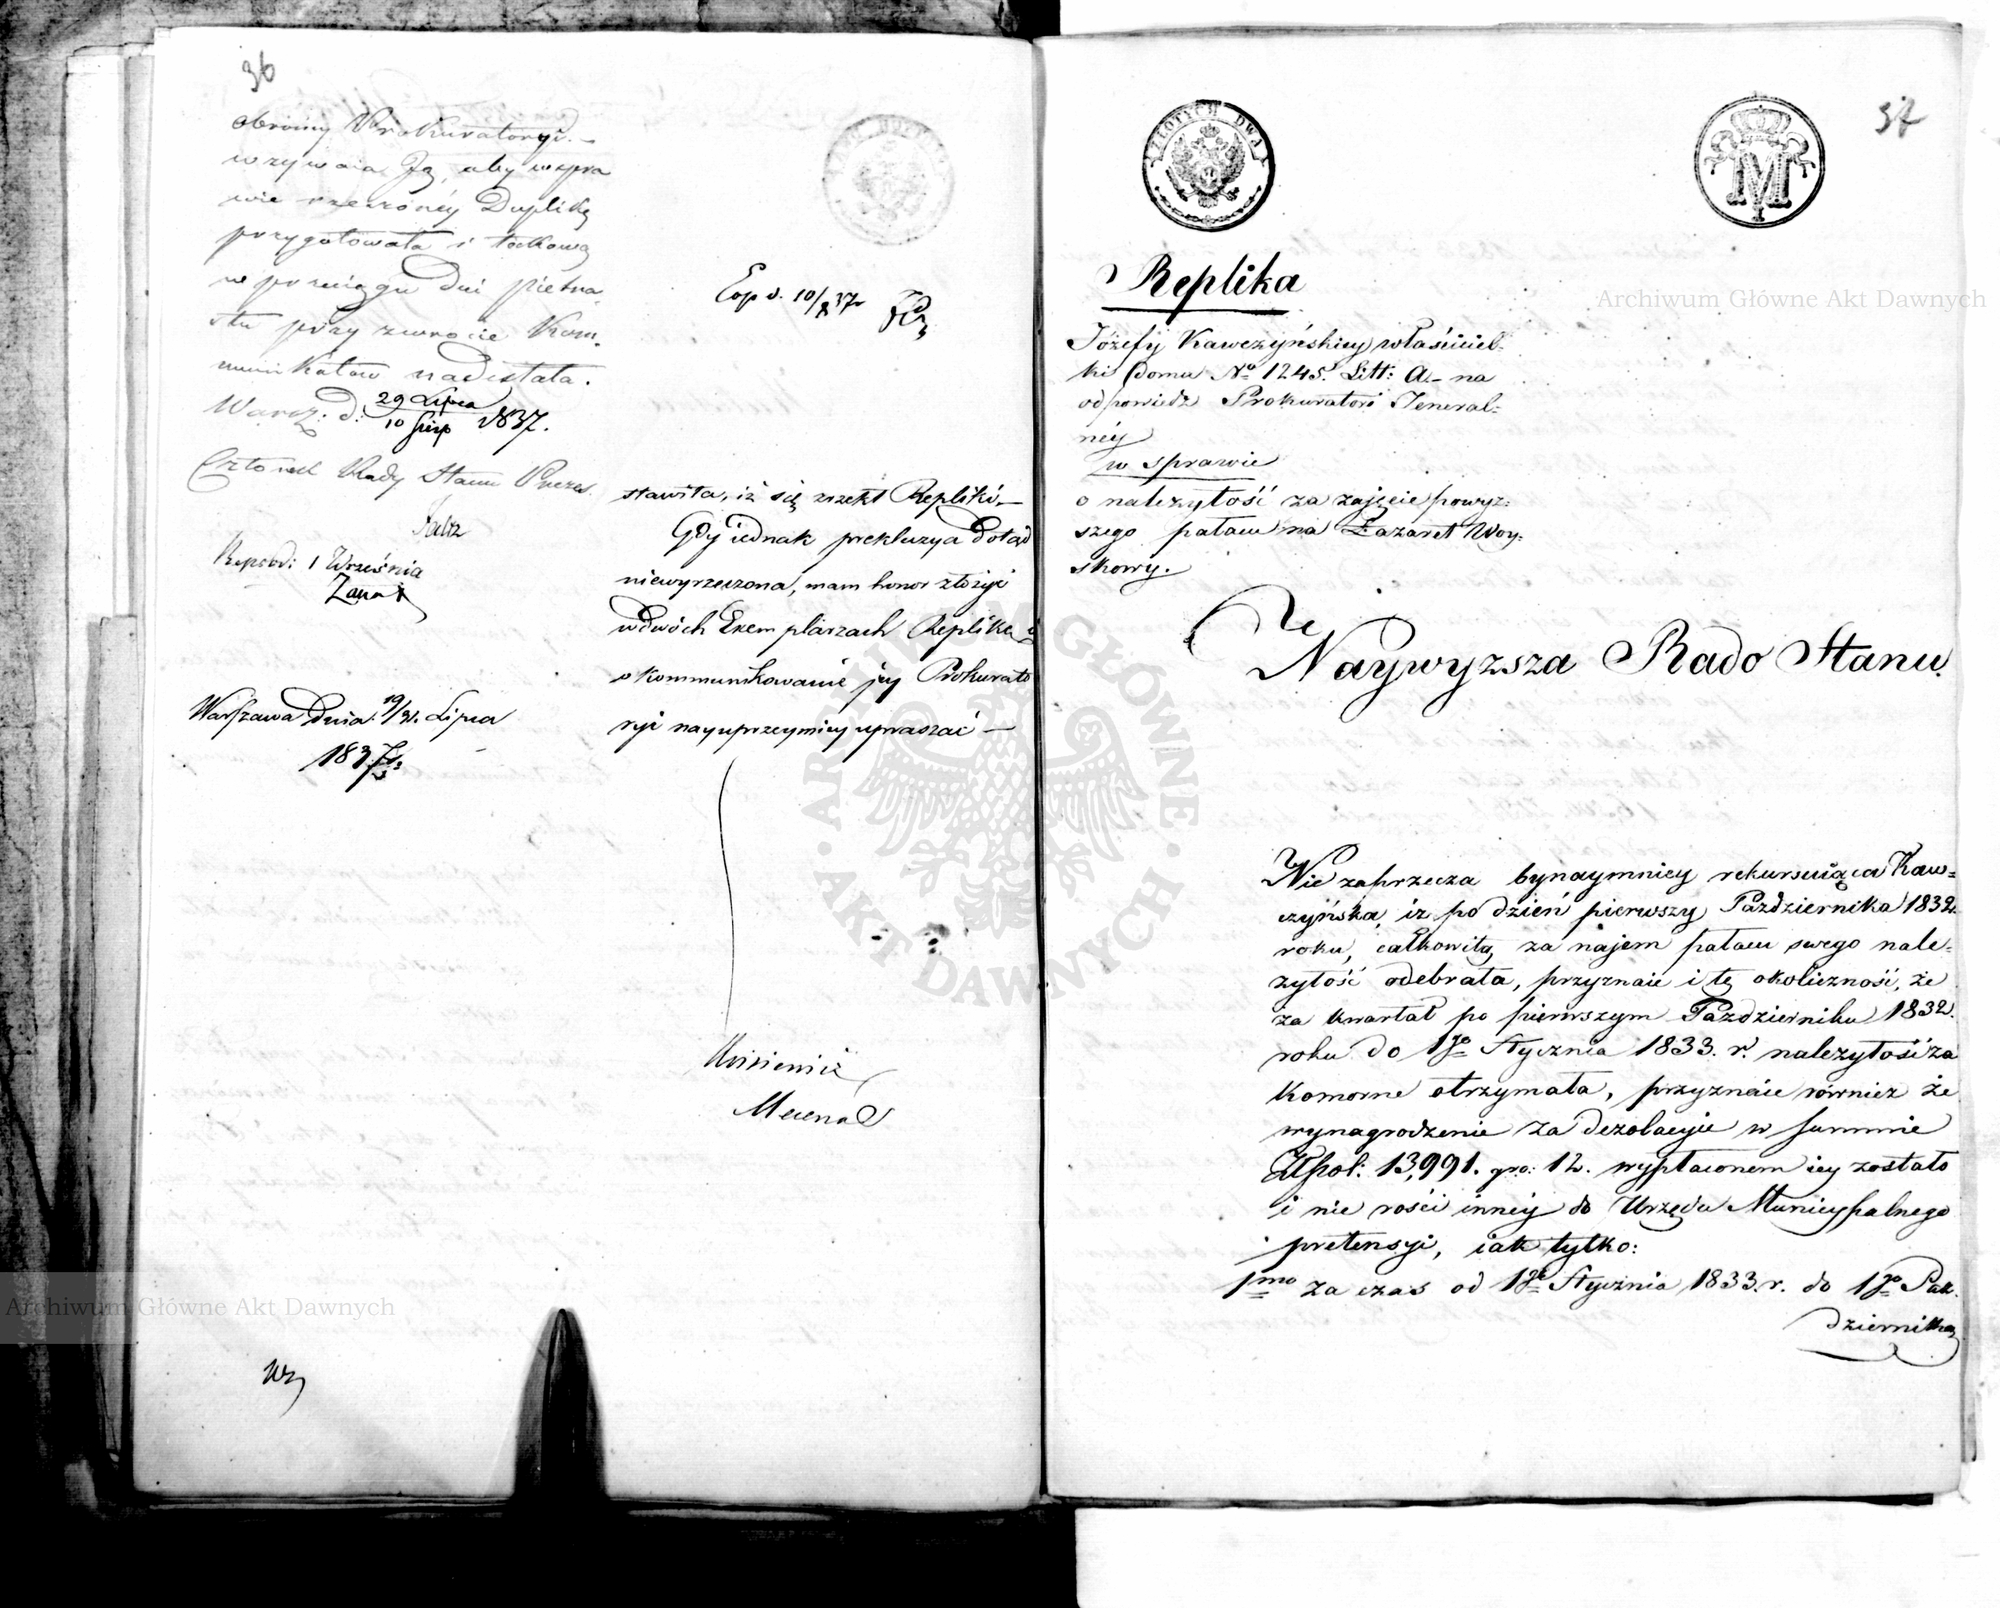 36
obrony Prokuratoryi. –
wzywaia Ją, aby w spra
wie rzeczonéy Duplikę
przygotowała i takową
w przeciągu dni piętna
stu przy zwrocie Kom-
munikatów nadesłała.
Warsz: d. 29 Lipca
10 Sierp 1837.
Członek Rady Stanu Prezes
Repord: 1 Września
Warszawa dnia 19/31. Lipca
1837 r.
Exp d. 10/8 37
stawiła, iż się zrzekł Repliki –
Gdy iednak prekluzya dotąd
niewyrzeczona, mam honor złożyć
w dwóch Exemplarzach Replikę i
o kommunikowanie jey Prokurato
ryi nayuprzeymiey upraszać –
Mecenas
37
ZŁOTYCH DWA
Replika
Józefy Kawczyńskiey właściciel-
ki domu No 1245. Litt: A – na
odpowiedź Prokuratori Jeneral-
néy
w sprawie
o należytość za zajęcie powyż-
szego pałacu na Lazaret Woy-
skowy.
Naywyższa Rado Stanu.
Nie zaprzecza bynaymniey rekursuiąca Kaw-
czyńska, iż po dzień pierwszy Października 1832
roku, całkowitą za najem pałacu swego nale-
żytość odebrała, przyznaie i tę okoliczność, że
za kwartał po pierwszym Październiku 1832.
roku do 1go Stycznia 1833. r. należytość za
komorne otrzymała, przyznaie również że
wynagrodzenie za dezolacyie w summie
Złpol: 13,991. gro: 12. wypłaconem iey zostało
i nie rości innéy do Urzędu Municypalnego
pretensyi, iak tylko:
1mo za czas od 1go Stycznia 1833. r. do 1go Paź-
dziernika
Archiwum Główne Akt Dawnych
Archiwum Główne Akt Dawnych
ARCHIWUM GŁÓWNE AKT DAWNYCH